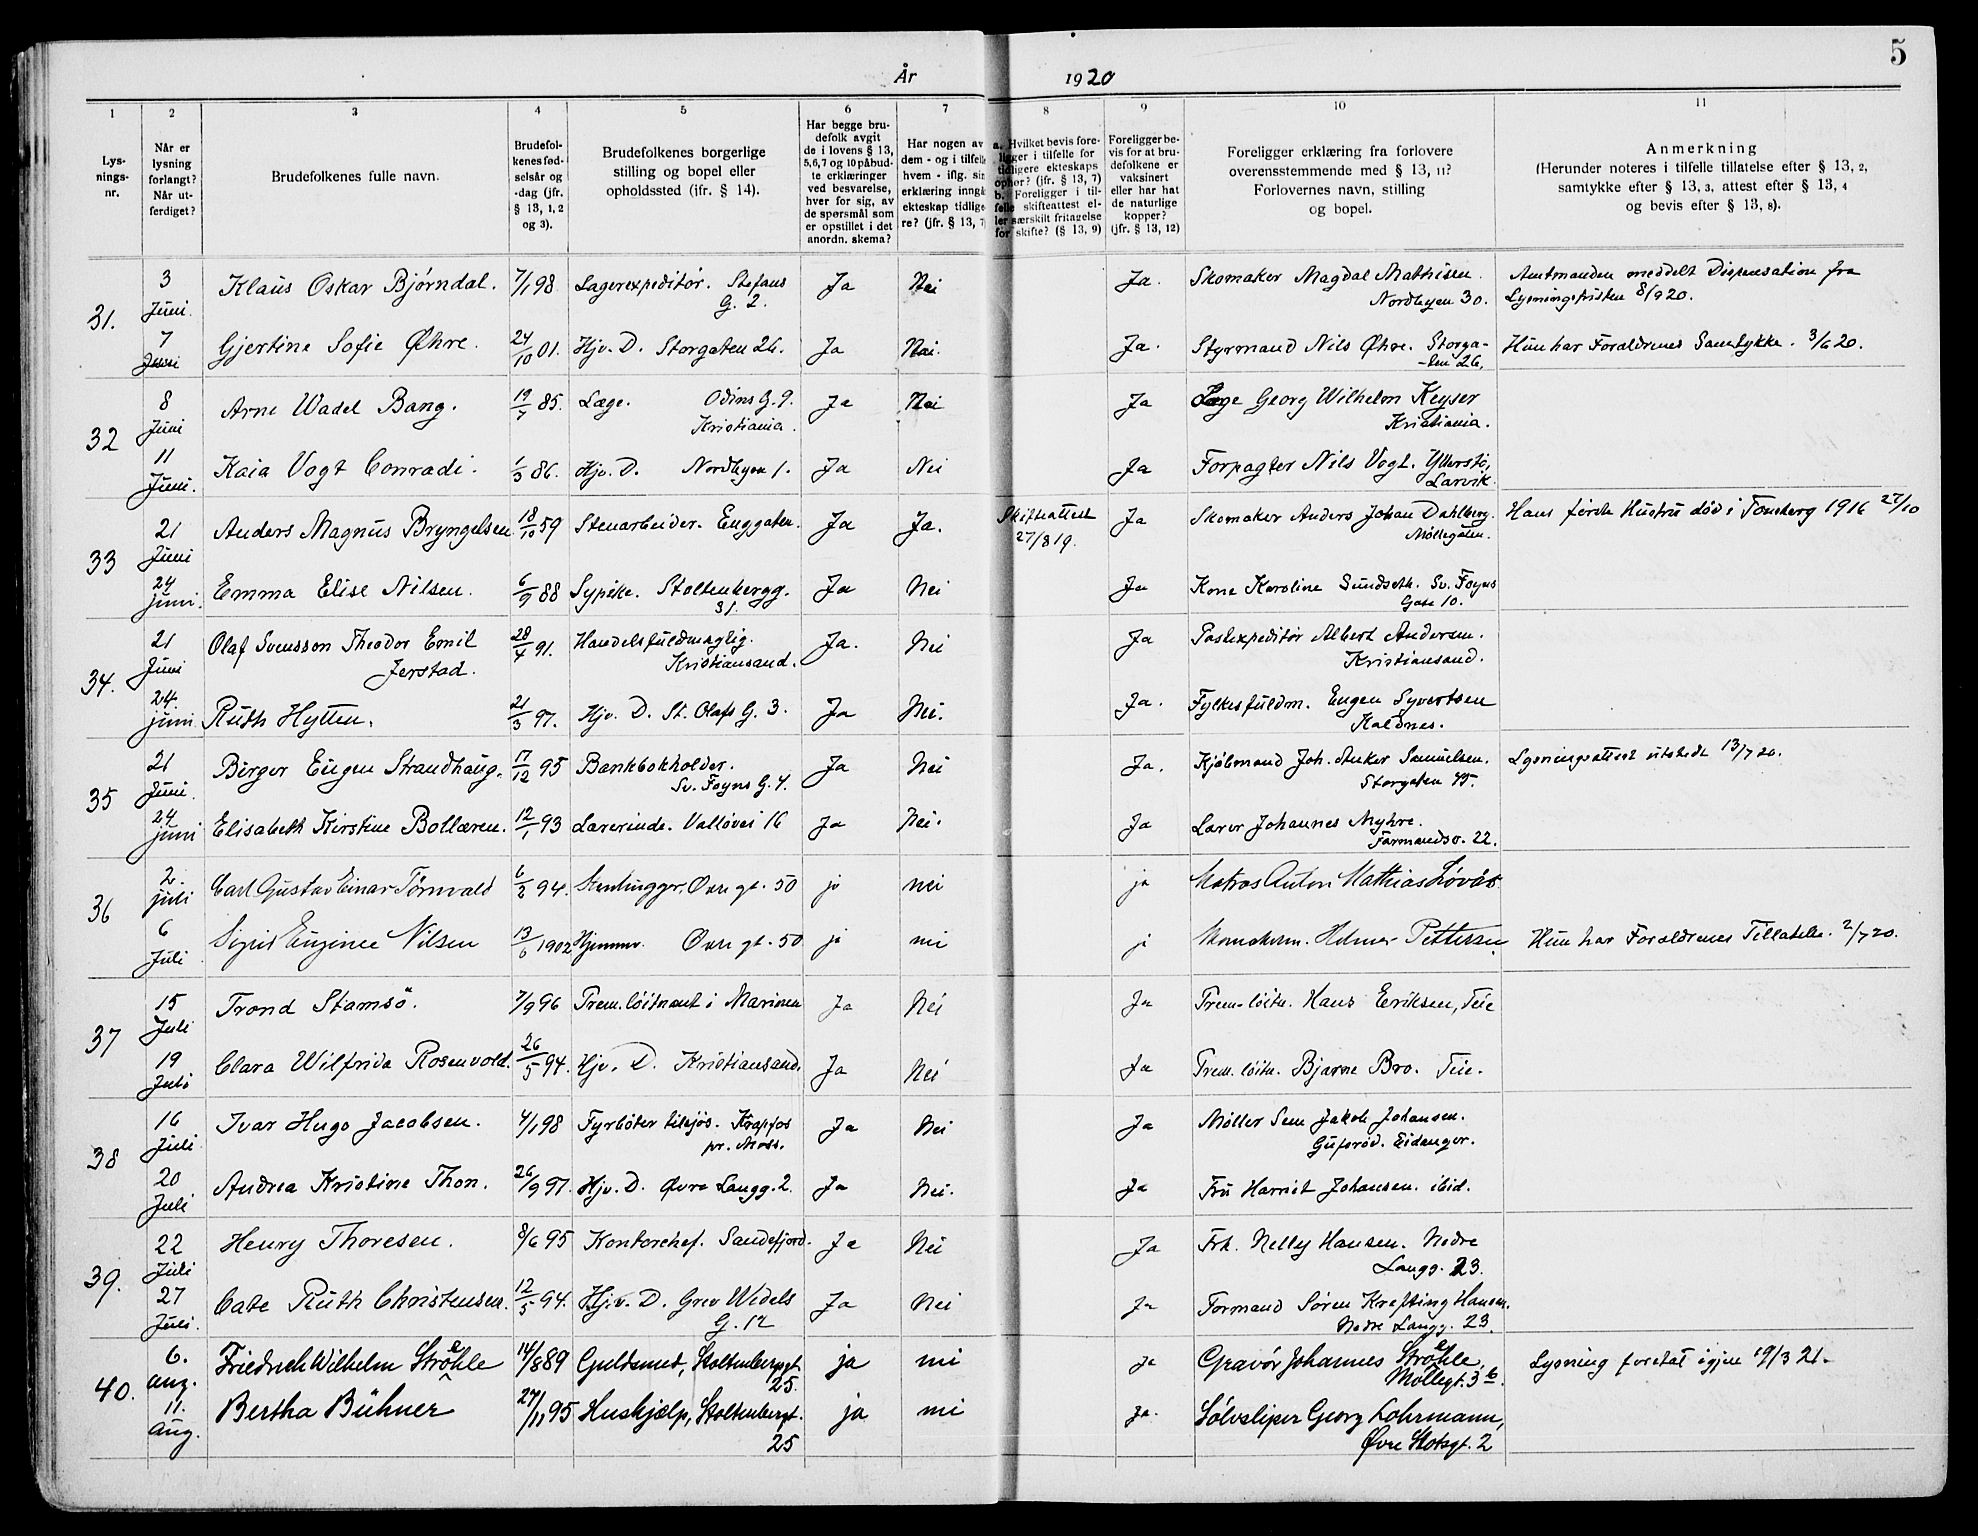 5
År 1920
1 2 3 4 5 6 7 8 9 10 11
Lys-
nings-
nr.
Når er
lysning
forlangt?
Når ut-
ferdiget?
Brudefolkenes fulle navn.
Brudefol-
kenes fød-
selsår og
-dag (jfr.
§ 13, 1, 2
og 3).
Brudefolkenes borgerlige
stilling og bopel eller
opholdssted (jfr. § 14).
Har begge bru-
defolk avgit
de i lovens § 13,
5,6,7 og 10 påbud-
te erklæringer
ved besvarelse,
hver for sig, av
de spørsmål som
er opstillet i det
anordn. skema?
Har nogen av
dem - og i tilfelle
hvem - iflg. sin
erklæring inngå
ekteskap tidlige-
re? (jfr. § 13, 7)
a. Hvilket bevis fore-
ligger i tilfelle for
tidligere ekteskaps
ophør? (jfr. § 13, 7)
b. Foreligger i til-
felle skifteattest el-
ler særskilt fritagelse
for skifte? (§ 13, 9)
Foreligger be-
vis for at bru-
defolkene er
vaksinert
eller har hat
de naturlige
kopper?
(jfr. § 13, 12)
Foreligger erklæring fra forlovere
overensstemmende med § 13, 11?
Forlovernes navn, stilling
og bopel.
Anmerkning
(Herunder noteres i tilfelle tillatelse efter § 13, 2,
samtykke efter § 13, 3, attest efter § 13, 4
og bevis efter § 13, 8).
31.
3 Juni Klaus Oskar Bjørndal. 7/1 98. Lagerexpeditør. Stefans Ja Nei Ja. Skomaker Magdal Mathisen. Amtmanden meddelt Dispensation fra
G. 2. Nordbyen 30. Lysningsfristen 8/9 20.
7 Juni Gjertine Sofie Øhre. 24/10 01. Hjv. D. Storgaten 26. Ja Nei. Ja. Styrmand Nils Øhre. Storga- Hun har Forældrenes Samtykke. 3/6 20.
-ten 26.
32
8 Juni Arne Wadel Bang. 85. Læge. Odins G. 9. Ja Nei Ja Læge Georg Wilhelm Keyser
Kristiania. Kristiania.
11 Juni. Kaia Vogt Conradi. 1/3 86. Hjv. D. Nordbyen 1. Ja Nei Ja Forpagter Nils Vogt.
Larvik.
33
21 Juni Anders Magnus Bryngelsen 18/10 59 Stenarbeider. Enggaten. Ja Ja. Skifteattest Ja Skomaker Anders Johan Dahlberg. Hans første Hustru død i Tønsberg 1916 27/10
27/8 19. Møllegaten.
24 juni. Emma Elise Nilsen. 6/9 88 Sypike. Stoltenbergg. Ja Nei Ja Kone Karoline Sundseth. Sv. Foyns
31. Gate 10.
34.
21 Juni Olaf Svensson Theodor Emil 28/4 91. Handelsfuldmægtig. Ja. Nei Ja Postexpeditør Albert Andersen.
Jerstad. Kristiansand. Kristiansand.
24. juni Ruth Hytten. 21/3 97. Hjv. D. St. Olafs G. 3. Ja Nei. Ja. Fylkesfuldm. Eugen Syvertsen
Kaldnes.
35
21 Juni. Birger Eugen Strandhaug. 17/12 95 Bankbokholder. Ja Nei Ja. Kjøbmand Joh. Anker Samuelsen. Lysningsattest utstedt 13/7 20.
Sv. Foyns G. 4. Storgaten 45.
24 juni Elisabeth Kirstine Bollæren. 12/1 93 Lærerinde. Valløvei 16 Ja Nei. Ja Lærer Johannes Myhre.
Farmandsv. 22.
36
2. juli Carl Gustav Einar Törnvald 6/2 94. Stenhugger, Øvre gt. 50 ja nei ja Matros Anton Mathias Løvås
6 Juli Sigrid Euginee Nilsen 13/6 1902 Hjemmev. Øvre gt. 50 ja nei ja Helmer Pettersen Hun har Forældrenes Tillatelse. 2/7 20.
37
15 Juli Trond Stamsö. 7/9 96 Prem. löitnant i Marinen Ja Nei Ja Prem.-löitn. Hans Eeriksen, Teie
19 Juli Clara Wilfrida Rosenvold. 26/5 94. Hjv. D. Kristiansand. Ja Nei Ja Prem. löitn. Bjarne Bro. Teie.
38
16 Juli Ivar Hugo Jacobsen. 4/1 98 Fyrböter tilsjös. Krapfos Ja Nei Ja Møller Sem Jakob Johansen.
pr. Moss. Eidanger.
20 Juli Andrea Kristine Thon. 26/9 97. Hjv. D. Øvre Langg. 2. Ja Nei. Ja Fru Harriet Johansen. ibid.
39.
22 Juli Henry Thoresen. 8/6 95 Kontorchef. Sandefjord. Ja Nei Ja Frk. Nelly Hansen. Nedre
Langg. 23.
27 Juli. Cate Ruth Christensen. 12/5 94. Hjv. D. Grev Wedels Ja Nei Ja Formand Søren Krefting Hansen.
G. 12 Nedre Langg. 23.
40.
6. aug. Friedrich Wilhelm Ströhle 14/8 89 Guldsmed, Stoltenbergsgt. ja nei ja Gravør Johannes Ströhle, Lysning foretat igjen 19/3 21.
25. Møllegt. 3 b.
11. aug. Bertha Bühner 27/11 95 Hushjælp, Stoltenbergt. ja nei ja. Sølvsliper Georg Lohrmann,
25 Øvre Slotsgt. 2